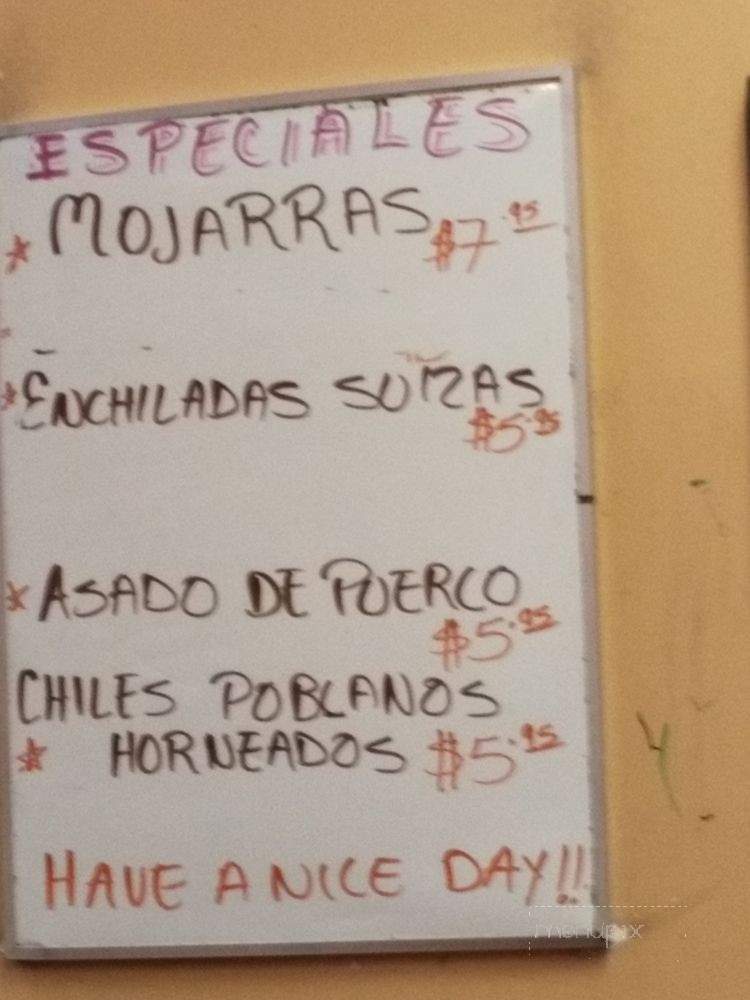 ESPECIALES
* MOJARRAS $7.95
* ENCHILADAS SUIZAS
$5.95
* ASADO DE PUERCO
$5.95
CHILES POBLANOS
* HORNEADOS $5.95
HAVE A NICE DAY!!
menupix